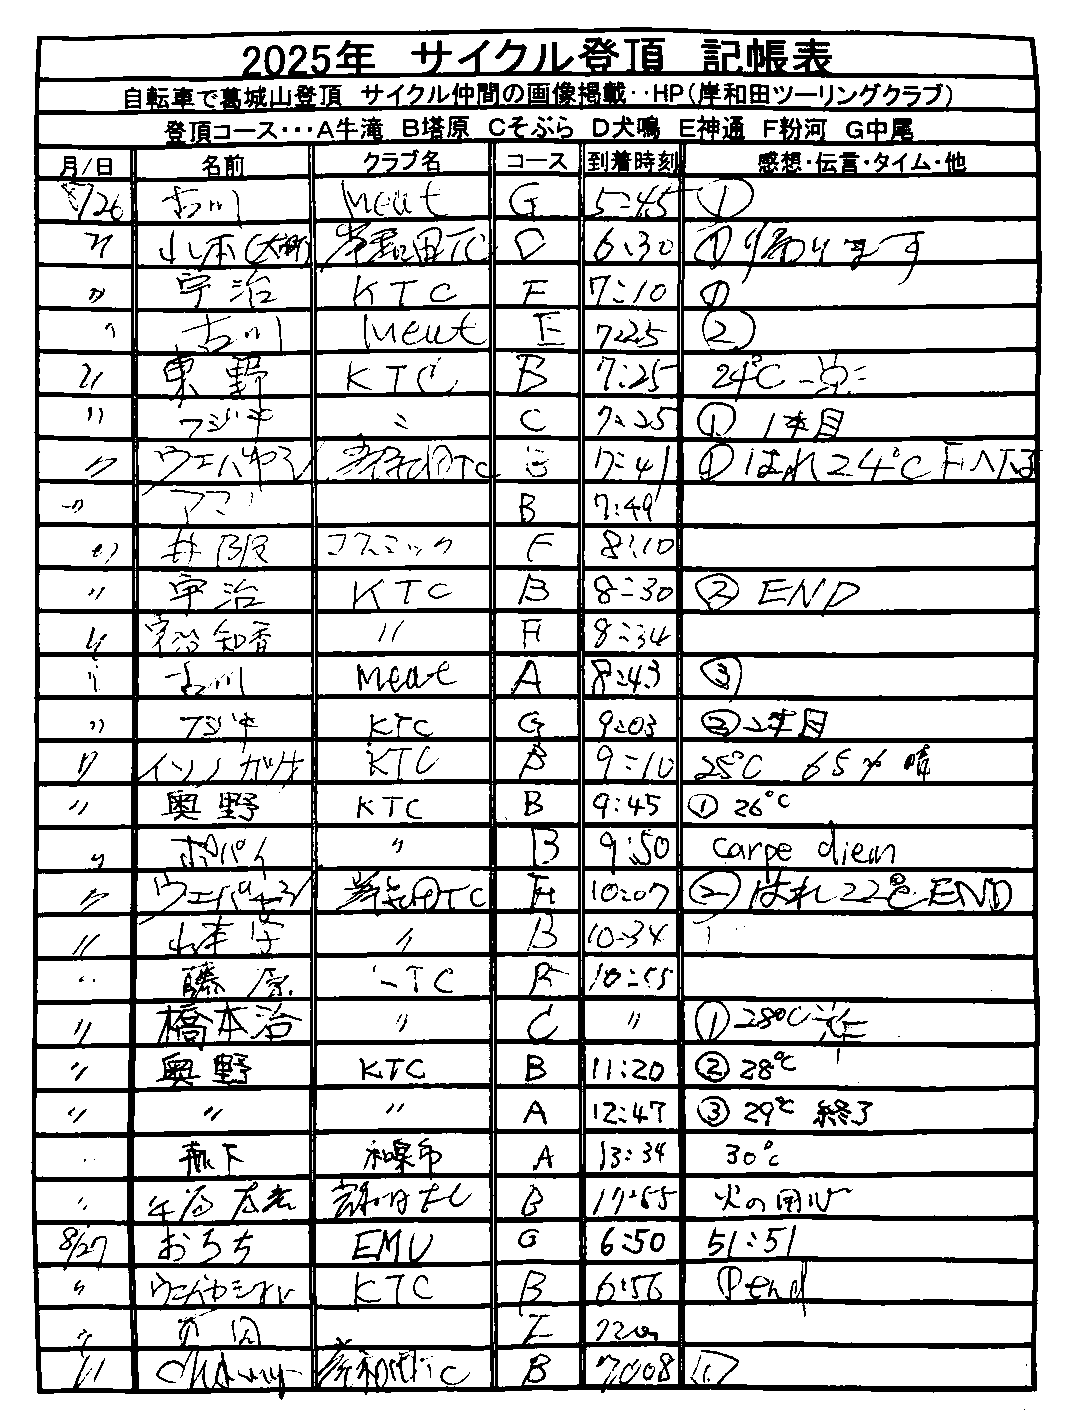 2025年 サイクル登頂 記帳表
自転車で葛城山登頂 サイクル仲間の画像掲載‥HP(岸和田ツーリングクラブ)
登頂コース・・・A牛滝 B塔原 Cそぶら D犬鳴 E神通 F粉河 G中尾
月/日 名前 クラブ名 コース 到着時刻 感想・伝言・タイム・他
8/26 古川 Meut G 5:45 ①
〃 山本 岸和田TC D 6:30 ① 帰ります
〃 宇治 KTC F 7:10 ①
〃 古川 Meut E 7:25 ②
〃 東野 KTC B 7:25 24℃
〃 フジキ 〃 C 7:25 ① 1本目
〃 岸和田TC 7:41 ① はれ 24℃
〃 B 7:49
〃 コスミック F 8:10
〃 宇治 KTC B 8:30 ② END
〃 宇治 知香 〃 8:34
〃 古川 Meat A 8:43 ③
〃 フジキ KTC G 9:03 ② 2本目
〃 イソノ KTC B 9:10 25℃ 65% 晴
〃 奥野 KTC B 9:45 ① 26℃
〃 ポパイ 〃 B 9:50 carpe diem
〃 岸和田TC 10:07 ② はれ 22℃ END
〃 〃 B 10:34
〃 藤原 TC 10:55
〃 橋本治 〃 C 〃 ① 28℃
〃 奥野 KTC B 11:20 ② 28℃
〃 〃 〃 A 12:47 ③ 29℃ 終了
〃 森下 和泉市 A 13:34 30℃
〃 B 17:55 火の用心
8/27 おろち EMU G 6:50 51:51
〃 KTC B 6:56 ① end
〃
〃 岸和田TC B 7:08 ①